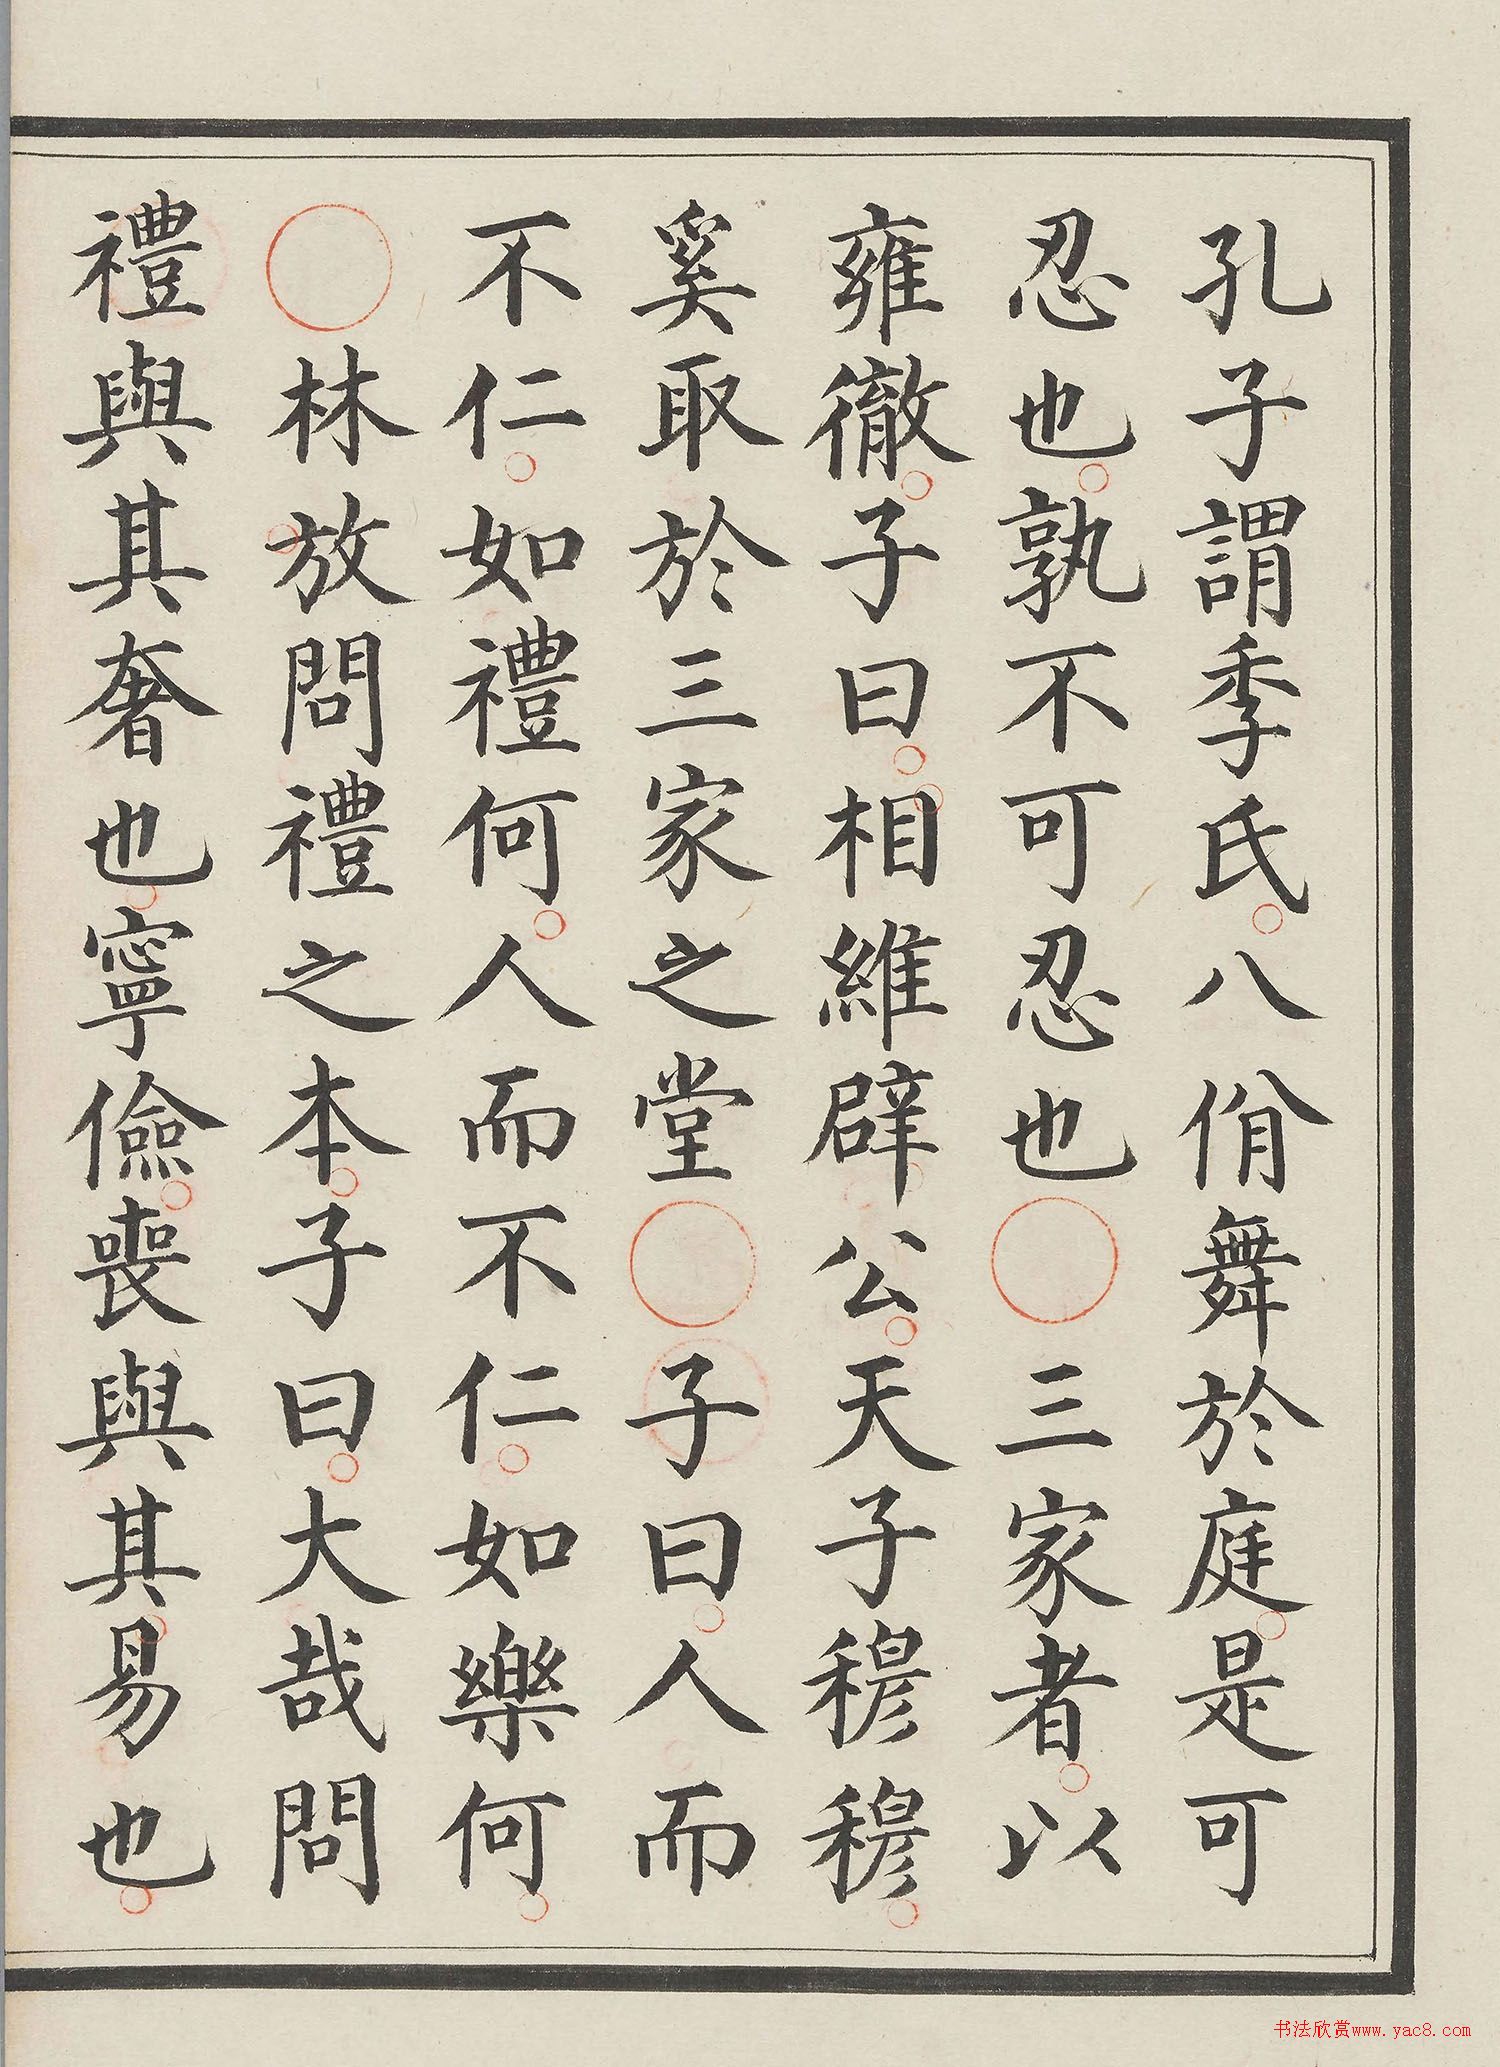 孔子謂季氏。八佾舞於庭。是可
忍也。孰不可忍也〇三家者。以
雍徹。子曰。相維辟公。天子穆穆。
奚取於三家之堂〇子曰。人而
不仁。如禮何。人而不仁。如樂何。
〇林放問禮之本。子曰。大哉問
禮與其奢也。寧儉。喪與其易也。
书法欣赏www.yac8.com